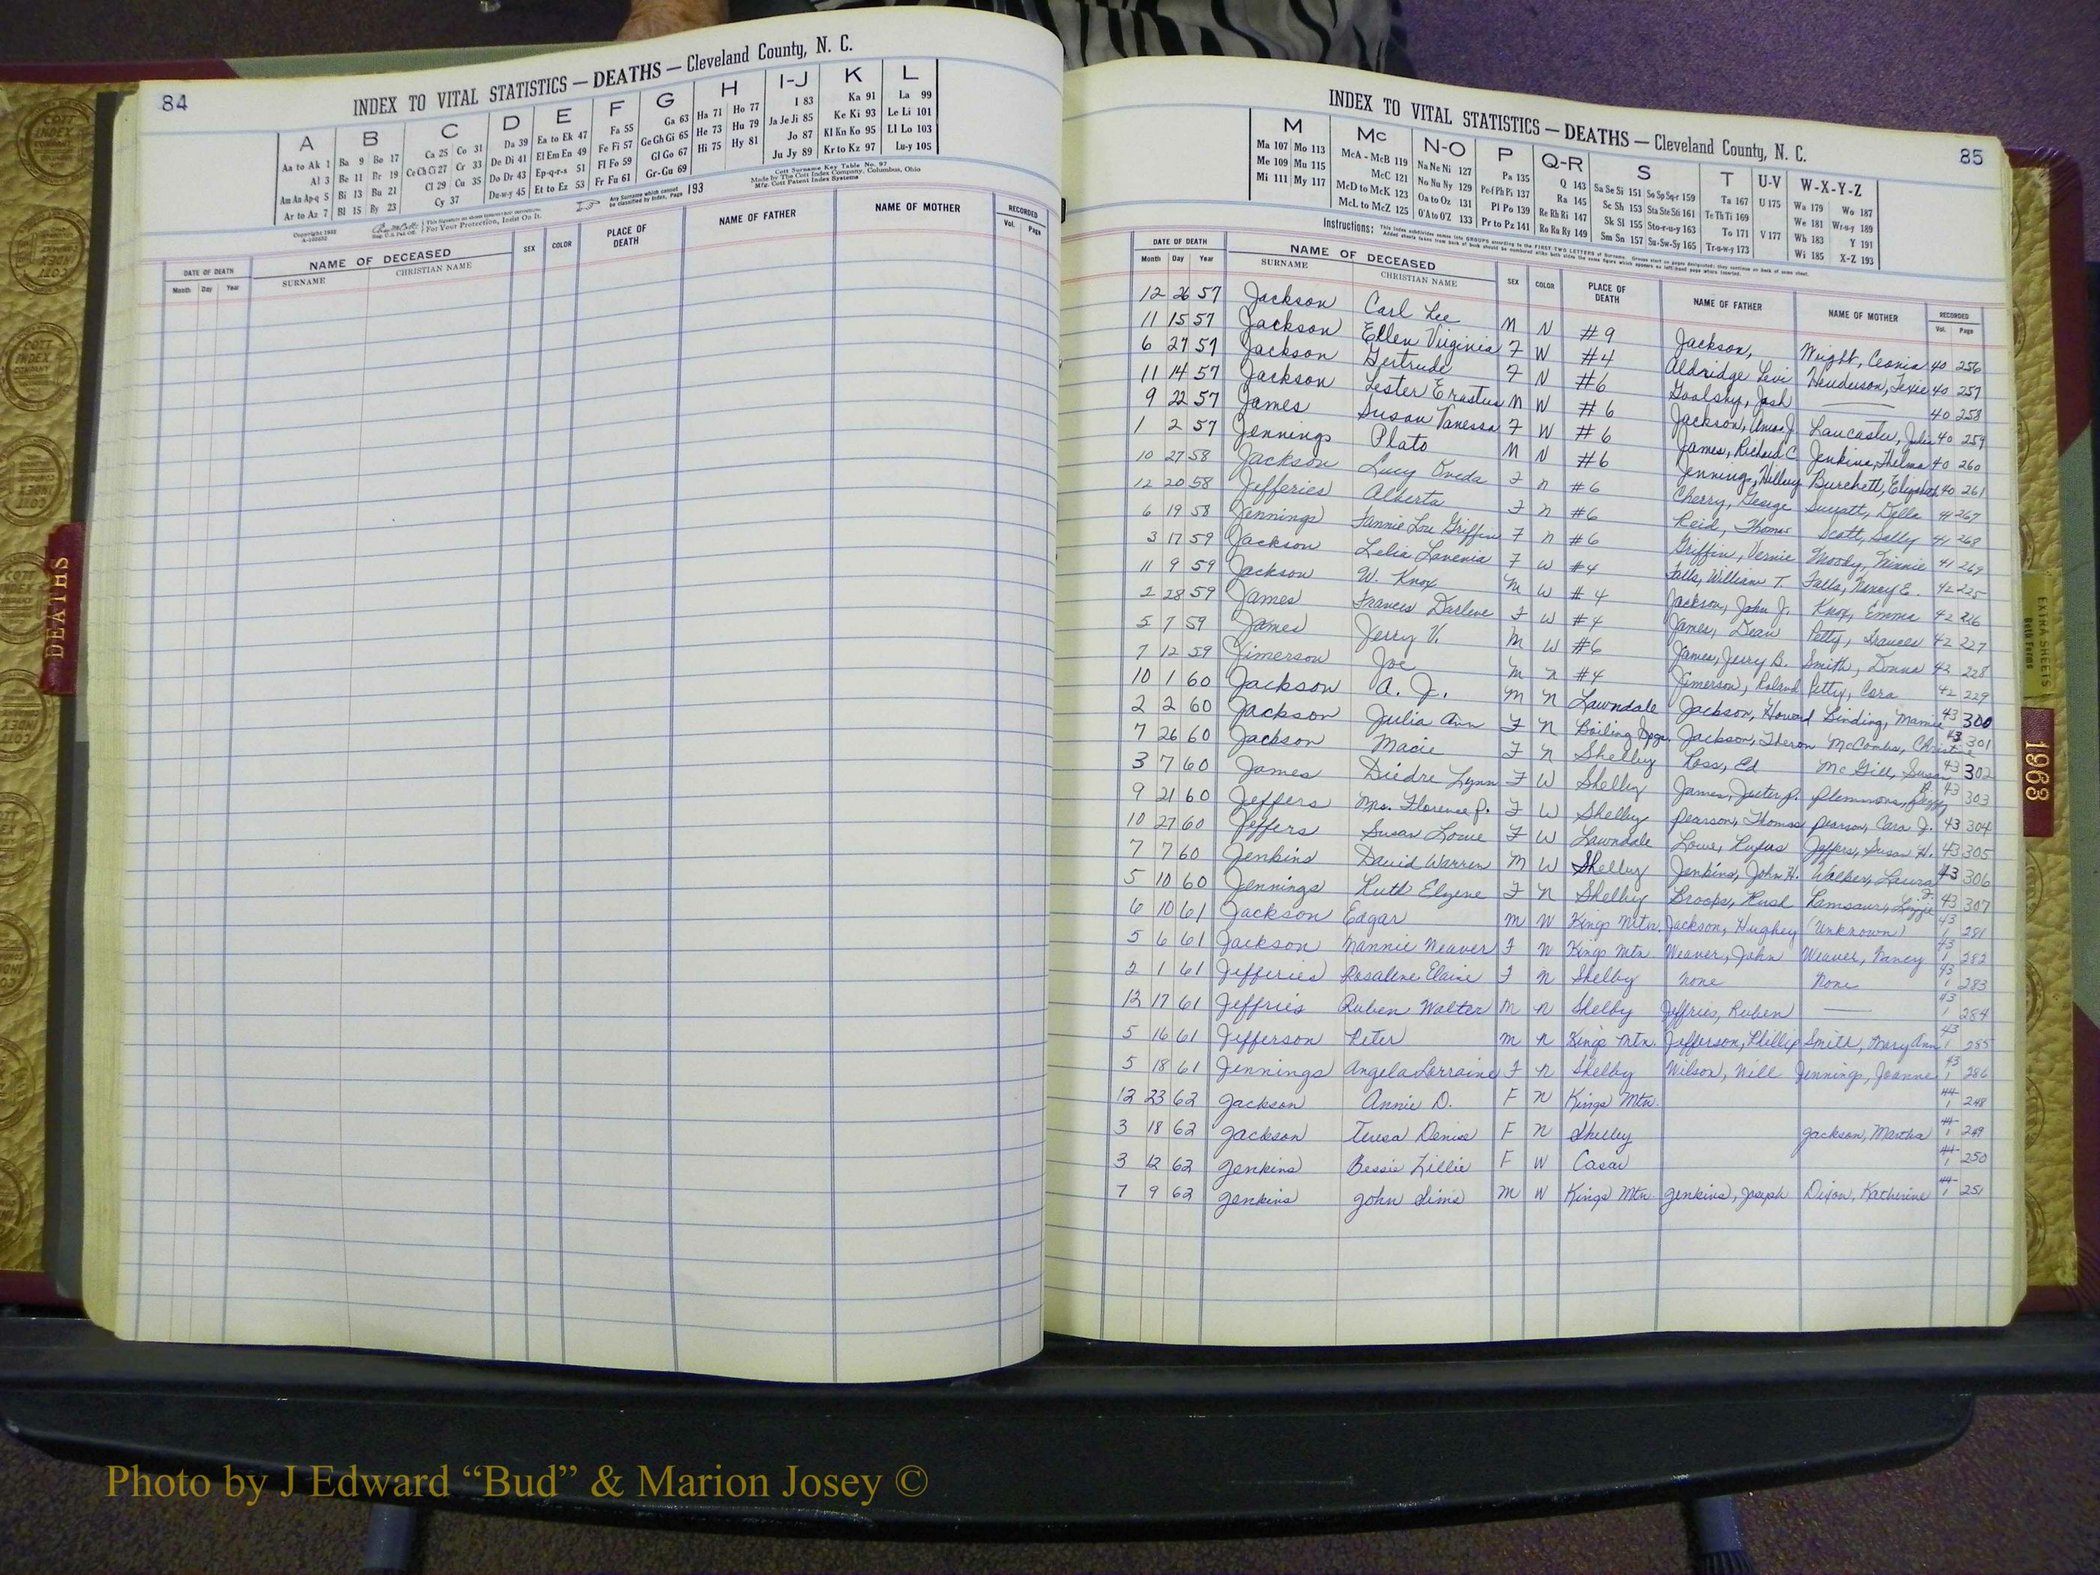 84
INDEX TO VITAL STATISTICS — DEATHS — Cleveland County, N. C.
A B C D E F G H I-J K L
Aa to Ak 1 Ba 9 Bo 17 Ca 25 Co 31 Da 39 Ea to Ek 47 Fa 55 Ga 63 Ha 71 Ho 77 I 83 Ka 91 La 99
Al 3 Be 11 Br 19 Ce Ch Ci 27 Cr 33 De Di 41 El Em En 49 Fe Fi 57 Ge Gh Gi 65 He 73 Hu 79 Ja Je Ji 85 Ke Ki 93 Le Li 101
Am An Ap-q 5 Bi 13 Bu 21 Cl 29 Cu 35 Do Dr 43 Ep-q-r-s 51 Fl Fo 59 Gl Go 67 Hi 75 Hy 81 Jo 87 Kl Kn Ko 95 Ll Lo 103
Ar to Az 7 Bl 15 By 23 Cy 37 Du-w-y 45 Et to Ez 53 Fr Fu 61 Gr-Gu 69 Ju Jy 89 Kr to Kz 97 Lu-y 105
Cott Surname Key Table No. 97
Made by The Cott Index Company, Columbus, Ohio
Mfg. Cott Patent Index Systems
Any Surname which cannot be classified by Index, Page 193
Copyright 1932
For Your Protection, Insist On It.
DATE OF DEATH NAME OF DECEASED SEX COLOR PLACE OF DEATH NAME OF FATHER NAME OF MOTHER RECORDED
Month Day Year SURNAME CHRISTIAN NAME Vol. Page
DEATHS
85
INDEX TO VITAL STATISTICS — DEATHS — Cleveland County, N. C.
M Mc N-O P Q-R S T U-V W-X-Y-Z
Ma 107 Mo 113 McA - McB 119 Na Ne Ni 127 Pa 135 Q 143 Sa Se Si 151 So Sp Sq-r 159 Ta 167 U 175 Wa 179 Wo 187
Me 109 Mu 115 McC 121 No Nu Ny 129 Pe Pf Ph Pi 137 Ra 145 Sc Sh 153 Sta Ste Sti 161 Te Th Ti 169 We 181 Wr-u-y 189
Mi 111 My 117 McD to McK 123 Oa to Oz 131 Pl Po 139 Re Rh Ri 147 Sk Sl 155 Sto-r-u-y 163 To 171 V 177 Wh 183 Y 191
McL to McZ 125 O'A to O'Z 133 Pr to Pz 141 Ro Ru Ry 149 Sm Sn 157 Su-Sw-Sy 165 Tr-u-w-y 173 Wi 185 X-Z 193
Instructions:
DATE OF DEATH NAME OF DECEASED SEX COLOR PLACE OF DEATH NAME OF FATHER NAME OF MOTHER RECORDED
Month Day Year SURNAME CHRISTIAN NAME Vol. Page
12 26 57 Jackson Carl Lee M N #9 Jackson, Wright, Ceonia 40 256
11 15 57 Jackson Ellen Virginia F W #4 Aldridge Levi Henderson, Lexie 40 257
6 27 57 Jackson Gertrude F N #6 Goolsby, Josh 40 258
11 14 57 Jackson Lester Erastus M W #6 Jackson, Amos J. Lancaster, Julia 40 259
9 22 57 James Susan Vanessa F W #6 James, Richard C. Jenkins, Thelma 40 260
1 2 57 Jennings Plato M N #6 Jennings, Hillery Burchett, Elizabeth 40 261
10 27 58 Jackson Lucy Oveda F N #6 Cherry, George Surratt, Della 41 267
12 20 58 Jefferies Alberta F N #6 Reid, Thomas Scott, Sally 41 268
6 19 58 Jennings Fannie Lou Griffin F N #6 Griffin, Vernie Moody, Minnie 41 269
3 17 59 Jackson Lelia Lavenia F W #4 Falls, William T. Falls, Nancy E. 42 225
11 9 59 Jackson W. Knox M W #4 Jackson, John J. Knox, Emma 42 226
2 28 59 James Frances Darlene F W #4 James, Dean Petty, Frances 42 227
5 7 59 James Jerry V. M W #6 James, Jerry B. Smith, Donna 42 228
7 12 59 Jimerson Joe M N #4 Jimerson, Roland Petty, Cora 42 229
10 1 60 Jackson A. J. M N Lawndale Jackson, Howard Binding, Mamie 43 300
2 2 60 Jackson Julia Ann F N Boiling Spgs. Jackson, Theron McCombs, Christine 43 301
7 26 60 Jackson Macie F N Shelby Ross, Ed McGill, Susan 43 302
3 7 60 James Diedre Lynn F W Shelby James, Jeeter P. Plemmons, Peggy 43 303
9 21 60 Jeffers Mrs. Florence P. F W Shelby Pearson, Thomas Pearson, Cora J. 43 304
10 27 60 Jeffers Susan Lowe F W Lawndale Lowe, Rufus Jeffers, Susan H. 43 305
7 7 60 Jenkins David Warren M W Shelby Jenkins, John H. Walker, Laura F. 43 306
5 10 60 Jennings Ruth Elzene F N Shelby Broops, Rush Ramsaur, Lizzie 43 307
6 10 61 Jackson Edgar M W Kings Mtn. Jackson, Hughey (Unknown) 43 1 281
5 6 61 Jackson Nannie Weaver F W Kings Mtn Weaver, John Weaver, Nancy 43 1 282
2 1 61 Jefferies Rosalene Elaine F N Shelby None None 43 1 283
12 17 61 Jeffries Ruben Walter M N Shelby Jeffries, Ruben 43 1 284
5 16 61 Jefferson Peter M N Kings Mtn. Jefferson, Phillip Smith, Mary Ann 43 1 285
5 18 61 Jennings Angela Lorraine F N Shelby Wilson, Will Jennings, Joanne 43 1 286
12 23 62 Jackson Annie D. F N Kings Mtn. 44 1 248
3 18 62 Jackson Teresa Denise F N Shelby Jackson, Martha 44 1 249
3 12 62 Jenkins Bessie Lillie F W Casar 44 1 250
7 9 62 Jenkins John Sims M W Kings Mtn. Jenkins, Joseph Dixon, Katherine 44 1 251
EXTRA SHEETS
Both Forms
1963
Photo by J Edward “Bud” & Marion Josey ©